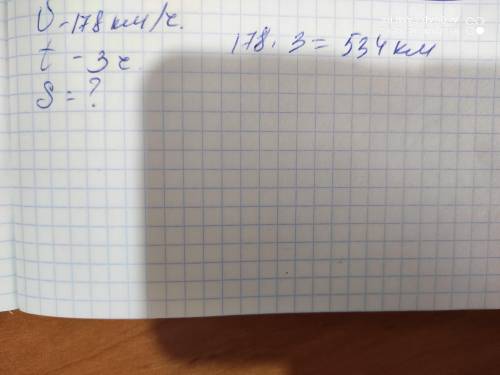 V - 178 км/ч.
t - 3 ч 178 · 3 = 534 км
S = ?